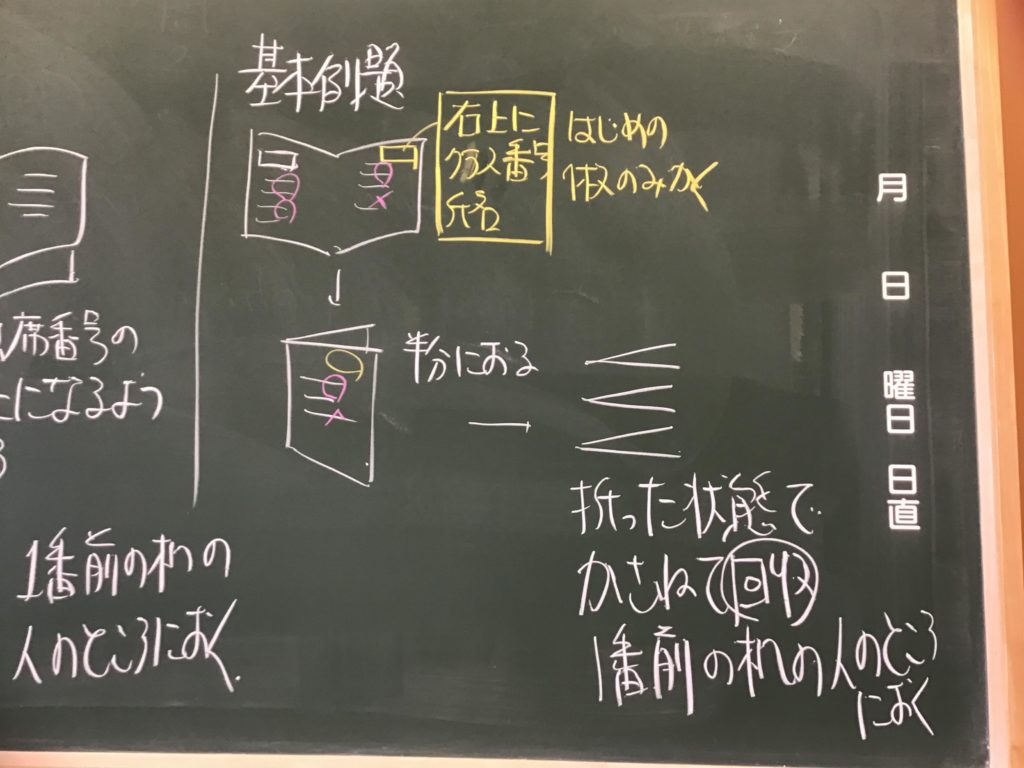 席番号の
になるよう
1番前の机の
人のところにおく
基本例題
右上に
クラス番号
氏名
はじめの
1枚のみかく
半分におる
折った状態で
かさねて回収
1番前の机の人のところ
におく
月
日
曜日
日直